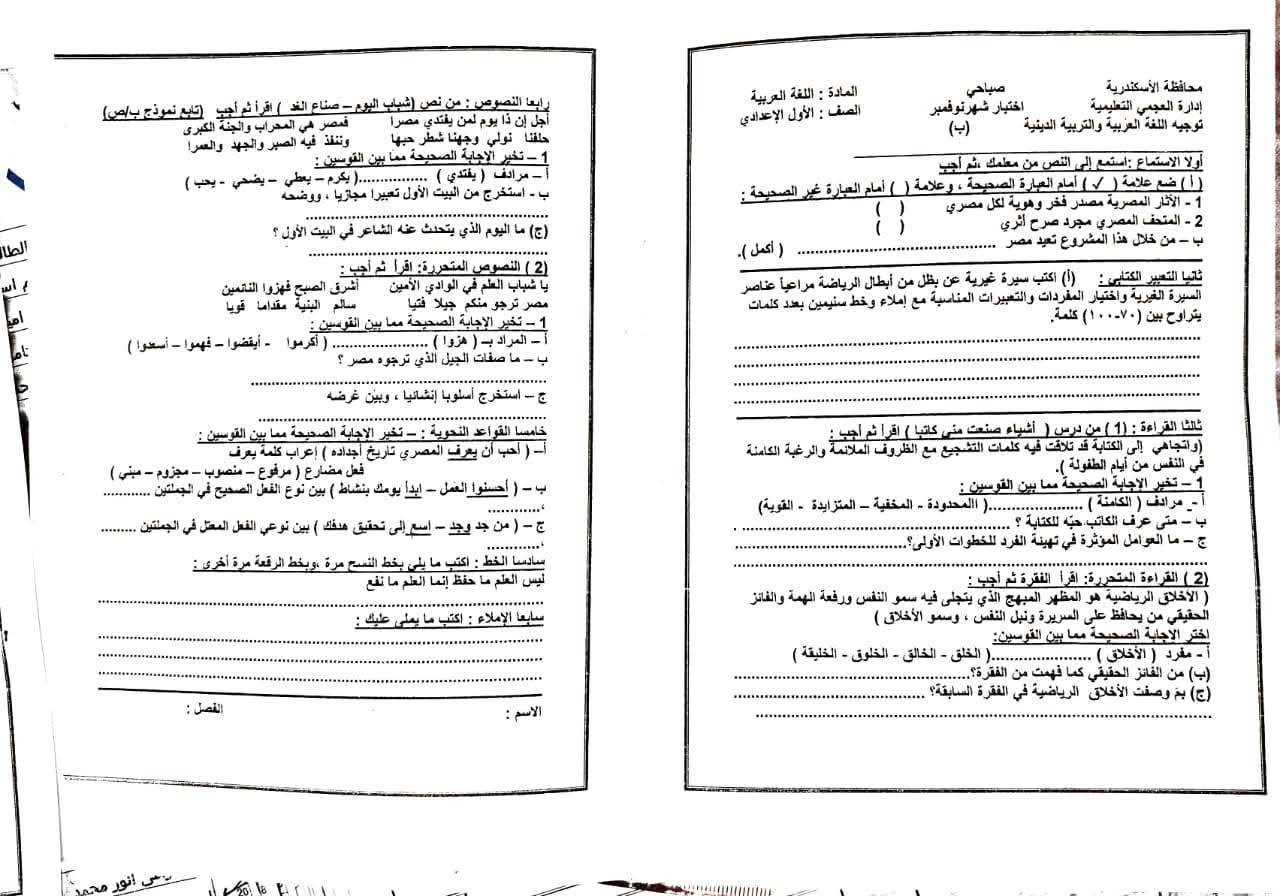 محافظة الأسكندرية صباحي المادة : اللغة العربية
إدارة العجمي التعليمية اختبار شهرنوفمبر الصف : الأول الإعدادي
توجيه اللغة العربية والتربية الدينية (ب)
أولا الاستماع :استمع إلى النص من معلمك ،ثم أجب
( أ ) ضع علامة ( ✓ ) أمام العبارة الصحيحة ، وعلامة ( ) أمام العبارة غير الصحيحة :
1 - الآثار المصرية مصدر فخر وهوية لكل مصري ( )
2 - المتحف المصري مجرد صرح أثري ( )
ب – من خلال هذا المشروع تعيد مصر ............................................ ( أكمل ).
ثانيا التعبير الكتابي : (أ) اكتب سيرة غيرية عن بطل من أبطال الرياضة مراعياً عناصر
السيرة الغيرية واختيار المفردات والتعبيرات المناسبة مع إملاء وخط سنيمين بعدد كلمات
يتراوح بين (٧٠-١٠٠) كلمة.
ثالثا القراءة : (1 ) من درس ( أشياء صنعت مني كاتبا ) اقرأ ثم أجب :
(واتجاهي إلى الكتابة قد تلاقت فيه كلمات التشجيع مع الظروف الملائمة والرغبة الكامنة
في النفس من أيام الطفولة ).
1 – تخير الإجابة الصحيحة مما بين القوسين :
أ - مرادف ( الكامنة ) .....................( االمحدودة - المخفية – المتزايدة - القوية)
ب – متى عرف الكاتب حبّه للكتابة ؟ ............................................................ .
ج – ما العوامل المؤثرة في تهيئة الفرد للخطوات الأولى؟......................................
(2 ) القراءة المتحررة: اقرأ الفقرة ثم أجب :
( الأخلاق الرياضية هو المظهر المبهج الذي يتجلى فيه سمو النفس ورفعة الهمة والفائز
الحقيقي من يحافظ على السريرة ونبل النفس ، وسمو الأخلاق )
اختر الإجابة الصحيحة مما بين القوسين:
أ - مفرد ( الأخلاق ) ......................( الخلق - الخالق - الخلوق - الخليقة )
(ب) من الفائز الحقيقي كما فهمت من الفقرة؟....................................................
(ج) بمَ وصفت الأخلاق الرياضية في الفقرة السابقة؟ ..........................................
رابعا النصوص : من نص (شباب اليوم – صناع الغد ) اقرأ ثم أجب (تابع نموذج ب/ص)
أجل إن ذا يوم لمن يفتدي مصرا فمصر هي المحراب والجنة الكبرى
حلفنا نولي وجهنا شطر حبها وننفذ فيه الصبر والجهد والعمرا
1 – تخير الإجابة الصحيحة مما بين القوسين :
أ – مرادف ( يفتدي ) ................( يكرم – يعطي – يضحي - يحب )
ب - استخرج من البيت الأول تعبيرا مجازيا ، ووضحه
(ج) ما اليوم الذي يتحدث عنه الشاعر في البيت الأول ؟
(2 ) النصوص المتحررة: اقرأ ثم أجب :
يا شباب العلم في الوادي الأمين أشرق الصبح فهزوا النائمين
مصر ترجو منكم جيلا فتيا سالم البنية مقداما قويا
1 – تخير الإجابة الصحيحة مما بين القوسين :
أ – المراد بـ ( هزوا ) ...................... ( أكرموا - أيقضوا – فهموا – أسعدوا )
ب – ما صفات الجيل الذي ترجوه مصر ؟
ج – استخرج أسلوبا إنشائيا ، وبيّن غرضه
خامسا القواعد النحوية : – تخير الإجابة الصحيحة مما بين القوسين :
أ– ( أحب أن يعرف المصري تاريخ أجداده ) إعراب كلمة يعرف
فعل مضارع ( مرفوع – منصوب – مجزوم – مبني )
ب – ( أحسنوا العمل – إبدأ يومك بنشاط ) بين نوع الفعل الصحيح في الجملتين ...........
،............
ج – ( من جد وجد – اسع إلى تحقيق هدفك ) بين نوعي الفعل المعتل في الجملتين .........
،............
سادسا الخط : اكتب ما يلي بخط النسح مرة ،وبخط الرقعة مرة أخرى :
ليس العلم ما حفظ إنما العلم ما نفع
سابعا الإملاء : اكتب ما يملى عليك :
الاسم : الفصل :
انور محمد